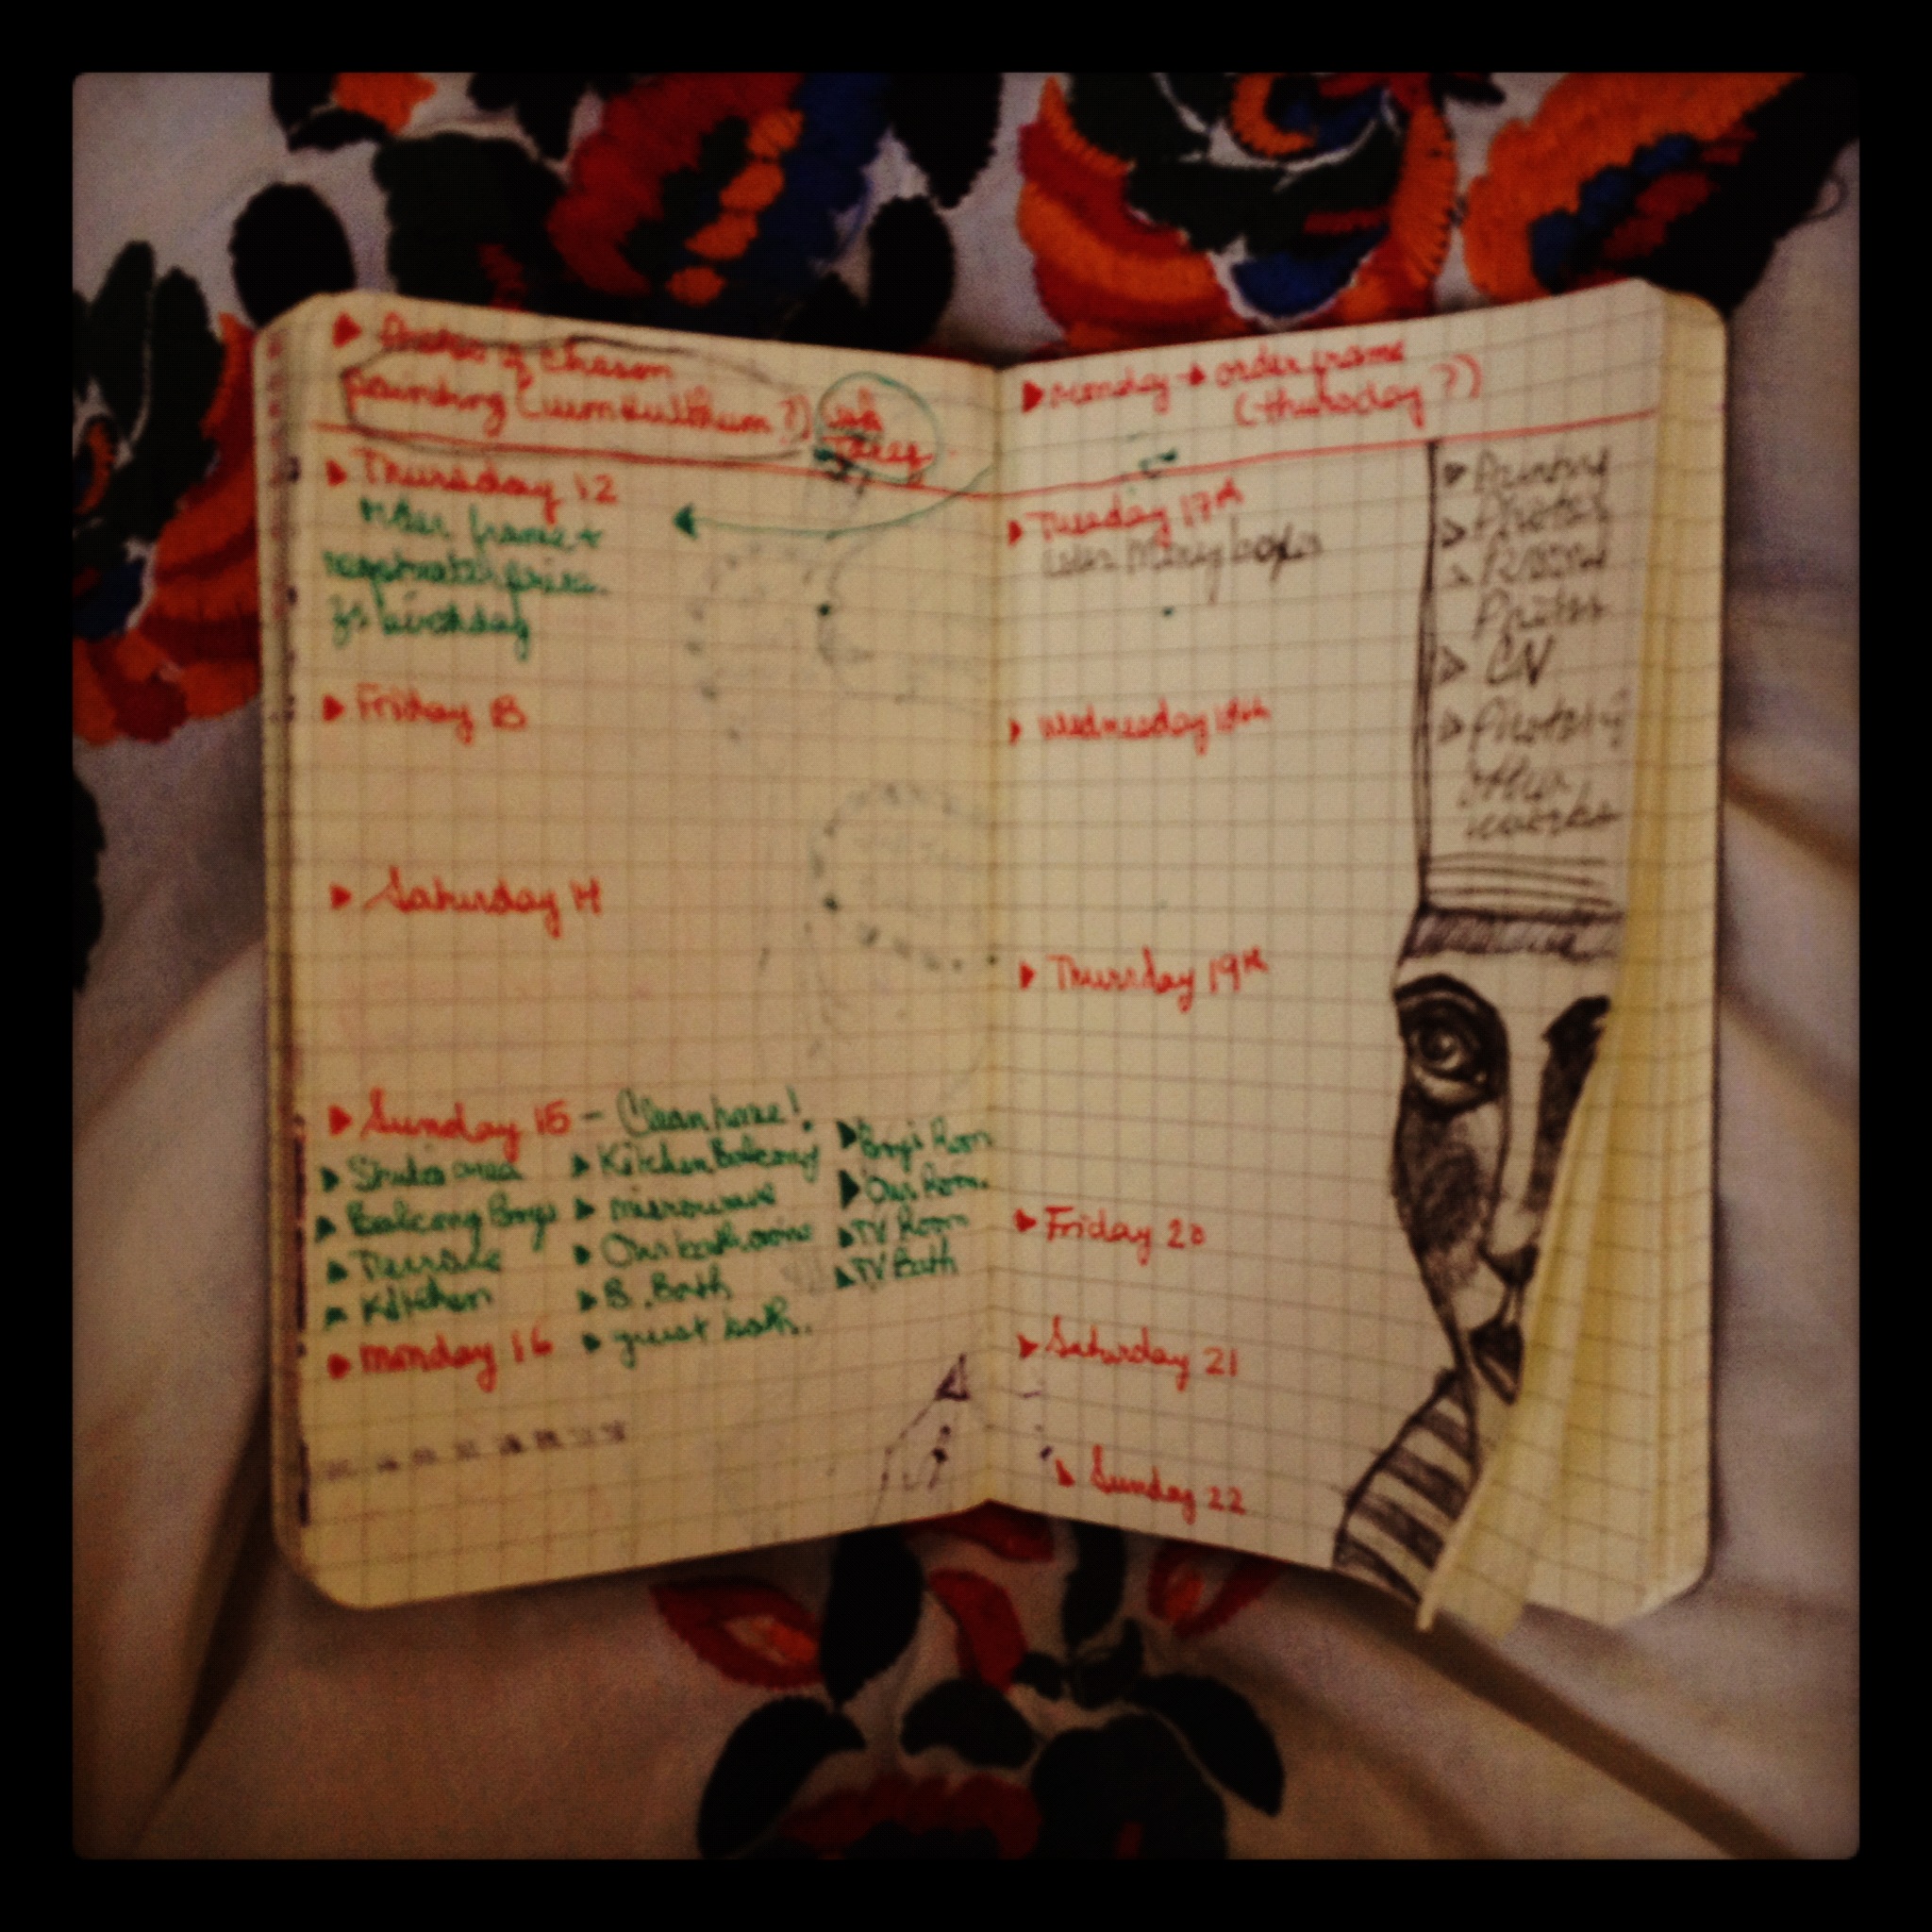 Photos of Chosen
painting (
ask
Thursday 12
order frame +
birthday
Friday 13
Saturday 14
Sunday 15 - Clean house!
Studio area
Balcony Boys
Terrace
Kitchen
Kitchen Balcony
microwave
Our bathroom
B. Bath
guest bath.
Boy's Room
Our Room
TV Room
TV Bath
Monday 16
Monday → order frame
(thursday ?)
Tuesday 17th
Wednesday 18th
Thursday 19th
Friday 20
Saturday 21
Sunday 22
Photos
CV
other
works